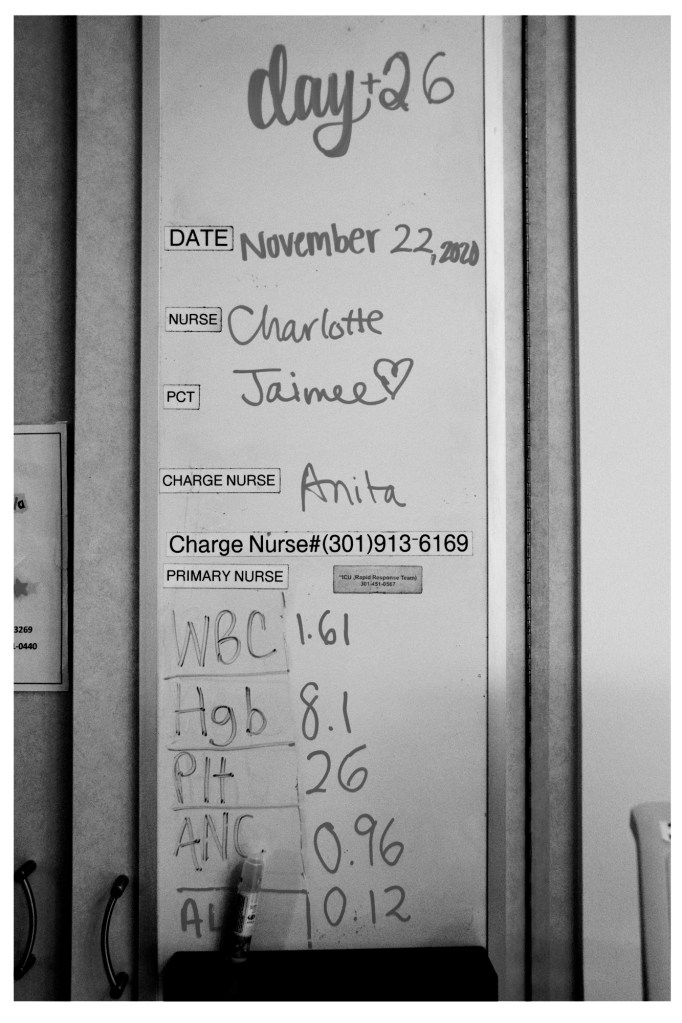 day+26
DATE November 22, 2020
NURSE Charlotte
PCT Jaimee
CHARGE NURSE Anita
Charge Nurse#(301)913-6169
PRIMARY NURSE
*ICU (Rapid Response Team)
301-451-0567
WBC 1.61
Hgb 8.1
Plt 26
ANC 0.96
AL 0.12
3269
-0440